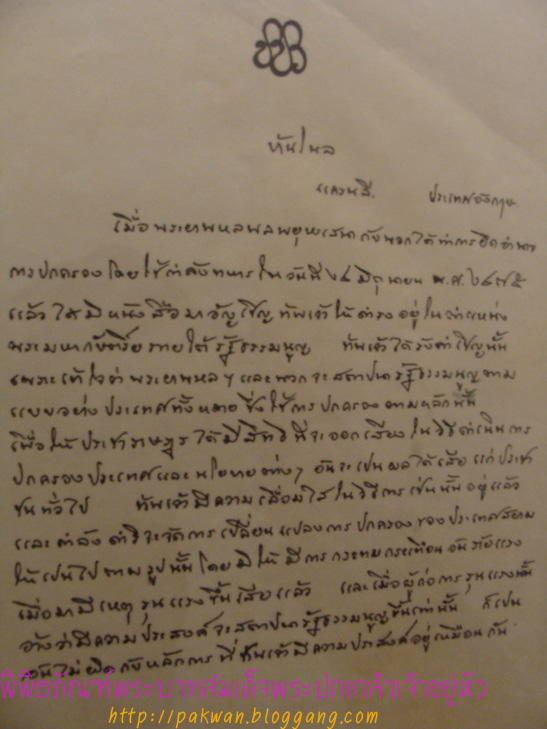 บ้านโนล
แครนลี. ประเทศอังกฤษ
เมื่อพระยาพหลพลพยุหเสนากับพวกได้ทำการยึดอำนาจ
การปกครองโดยใช้กำลังทหารในวันที่ ๒๔ มิถุนายน พ.ศ. ๒๔๗๕
แล้ว ได้มีหนังสือมาอัญเชิญข้าพเจ้าให้ดำรงอยู่ในตำแหน่ง
พระมหากษัตริย์ภายใต้รัฐธรรมนูญ ข้าพเจ้าได้รับคำเชิญนั้น
เพราะเข้าใจว่าพระยาพหลฯ และพวกจะสถาปนารัฐธรรมนูญตาม
แบบอย่างประเทศทั้งหลายซึ่งใช้การปกครองตามหลักนั้น
เพื่อให้ประชาราษฎรได้มีสิทธิที่จะออกเสียงในวิธีดำเนินการ
ปกครองประเทศและนโยบายต่างๆ อันจะเป็นผลได้เสียแก่ประชา
ชนทั่วไป ข้าพเจ้ามีความเลื่อมใสในวิธีการเช่นนั้นอยู่แล้ว
และกำลังดำริจะจัดการเปลี่ยนแปลงการปกครองของประเทศสยาม
ให้เป็นไปตามรูปนั้นโดยมิให้มีการกระทบกระเทือนอันร้ายแรง
เมื่อมามีเหตุรุนแรงขึ้นเสียแล้ว และเมื่อผู้ก่อการรุนแรงนั้น
อ้างว่ามีความประสงค์จะสถาปนารัฐธรรมนูญขึ้นเท่านั้น ก็เป็น
อันไม่ผิดกับหลักการที่ข้าพเจ้ามีความประสงค์อยู่เหมือนกัน
พิพิธภัณฑ์พระบาทสมเด็จพระปกเกล้าเจ้าอยู่หัว
http://pakwan.bloggang.com